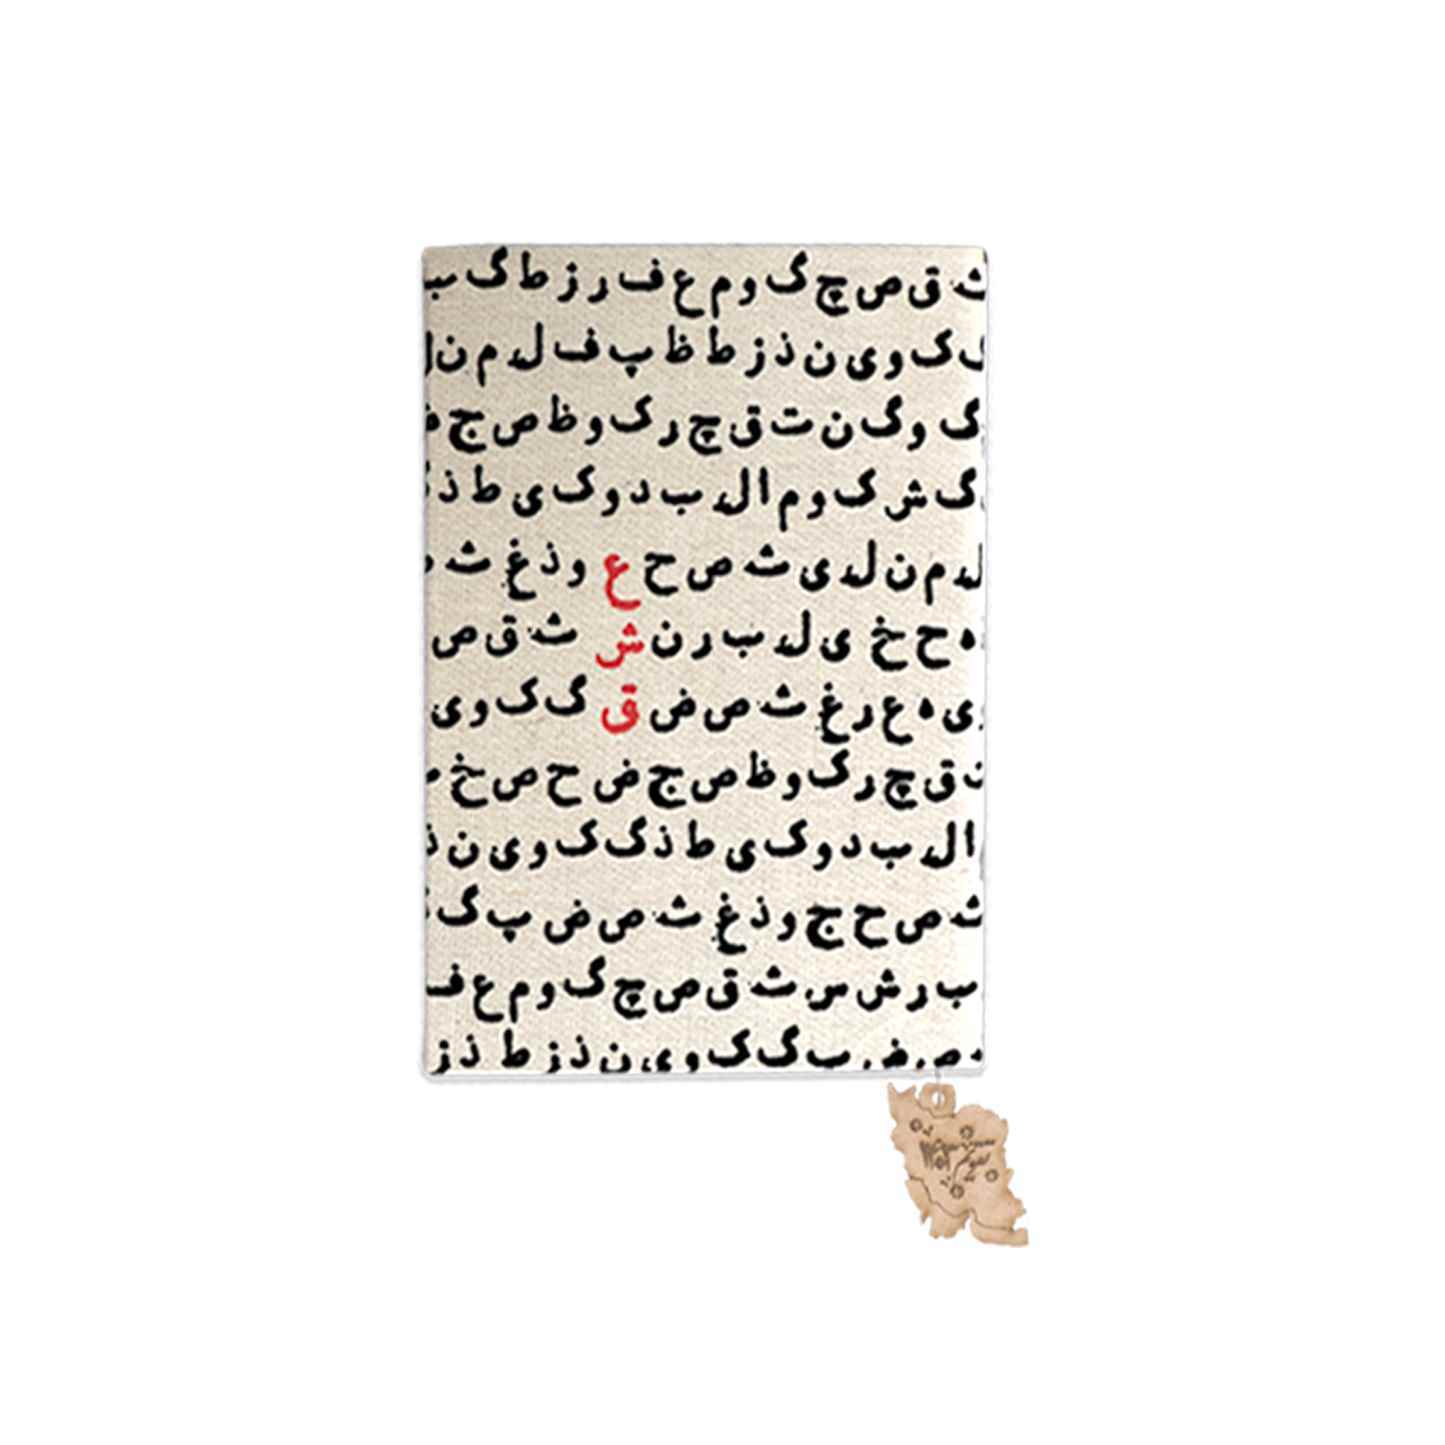 ث ق ص چ گ و م ع ف ر ز ط گ ب
ک و ی ن ذ ز ط ظ پ ف ل م ن ل
گ و گ ن ت ق چ ر ک و ظ ص ج ض
گ ش ک و م ا ل ب د و ک ی ط ذ
ل م ن ل ی ث ص ح ع و ذ غ ث
ه ح خ ی ل ب ر ن ش ث ق ص
ی ه ع ر غ ث ص ض ق گ ک و ی
ت ق چ ر ک و ظ ص ج ض ح ص خ
ا ل ب د و ک ی ط ذ گ ک و ی ن ذ
ث ص ح ج و ذ غ ث ص ض پ گ
ب ر ش س ث ق ص چ گ و م ع ف
ص ض ب گ ک و ی ن ذ ز ط ذ ز